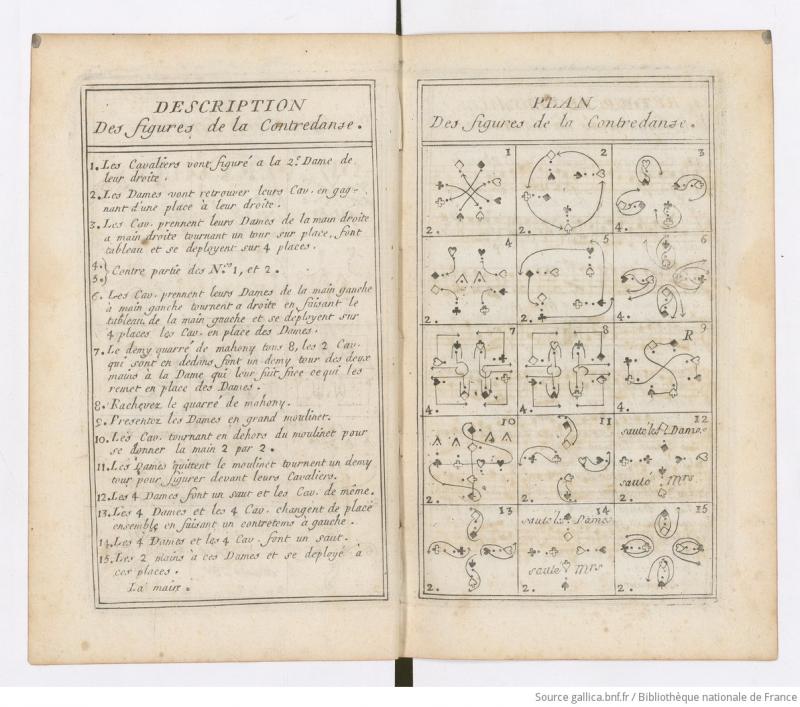 DESCRIPTION
Des figures de la Contredanse.
1. Les Cavaliers vont figuré a la 2.e Dame de
leur droite.
2. Les Dames vont retrouver leurs Cav. en gag-
nant d'une place à leur droite.
3. Les Cav. prennent leurs Dames de la main droite
a main droite tournant un tour sur place, font
tableau et se deployent sur 4 places.
4.
5.} Contre partie des N.ros 1, et 2.
6. Les Cav. prennent leurs Dames de la main gauche
à main gauche tournent a droite en faisant le
tableau de la main gauche et se deployent sur
4 places les Cav. en place des Dames.
7. Le demy quarré de mahony tous 8, les 2 Cav.
qui sont en dedens font un demy tour des deux
mains à la Dame qui leur fait face ce qui les
remet en place des Dames.
8. Rachevez le quarré de mahony.
9. Presentez les Dames en grand moulinet.
10. Les Cav. tournant en dehors du moulinet pour
se donner la main 2 par 2.
11. Les Dames quittent le moulinet tournent un demy
tour pour figurer devant leurs Cavaliers.
12. Les 4 Dames font un saut et les Cav. de même.
13. Les 4 Dames et les 4 Cav. changent de place
ensemble en faisant un contretems à gauche.
14. Les 4 Dames et les 4 Cav. font un saut.
15. Les 2 mains à ces Dames et se deployé à
ces places.
La main.
PLAN
Des figures de la Contredanse.
1
2.
2
2.
3
4.
4
2.
5
2.
6
4.
7
4.
8
4.
9
R
4.
10
2.
11
2.
12
sauté les 4 Dames
sauté Mrs
2.
13
2.
14
sauté les Dames
saute Mrs
2.
15
2.
Source gallica.bnf.fr / Bibliothèque nationale de France